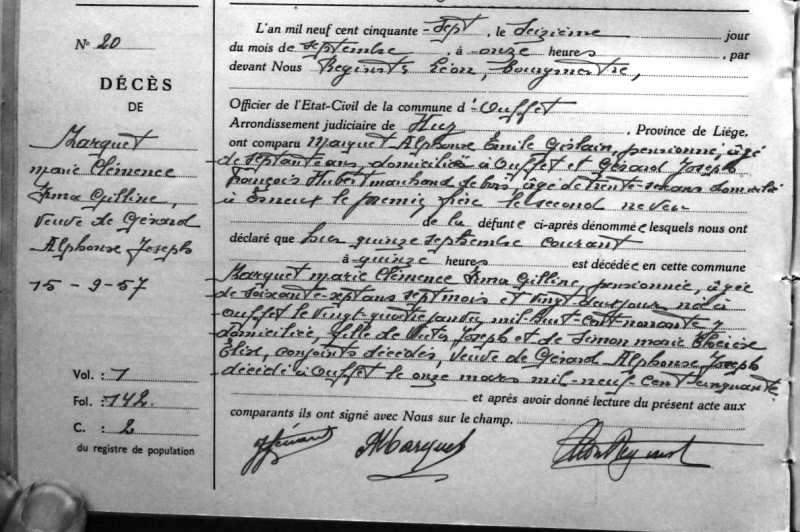 N° 20
DÉCÈS
DE
Marquet
Marie Clémence
Irma Gilline,
veuve de Gérard
Alphonse Joseph
15 - 9 - 57
Vol. : 1
Fol. : 142.
C. : 2
du registre de population
L'an mil neuf cent cinquante-sept, le seizième jour
du mois de septembre, à onze heures, par
devant Nous Reginster Léon, bourgmestre,
Officier de l'Etat-Civil de la commune d'Ouffet
Arrondissement judiciaire de Huy, Province de Liége,
ont comparu Marquet Alphonse Émile Gislain, pensionné, âgé
de septante ans, domicilié à Ouffet et Gérard Joseph
François Hubert marchand de bois, âgé de trente-six ans domicilié
à Esneux le premier frère le second neveu
de la défunte ci-après dénommée lesquels nous ont
déclaré que hier quinze septembre courant
à quinze heures est décédée en cette commune
Marquet Marie Clémence Irma Gilline, pensionnée, âgée
de soixante-sept ans sept mois et vingt deux jours née à
Ouffet le vingt-quatre janvier mil-huit-cent-nonante y
domiciliée, fille de Joseph et de Simon Marie Thérèse
Élise, conjoints décédés, veuve de Gérard Alphonse Joseph
décédé à Ouffet le onze mars mil-neuf-cent cinquante
et après avoir donné lecture du présent acte aux
comparants ils ont signé avec Nous sur le champ.
JGérard AMarquet